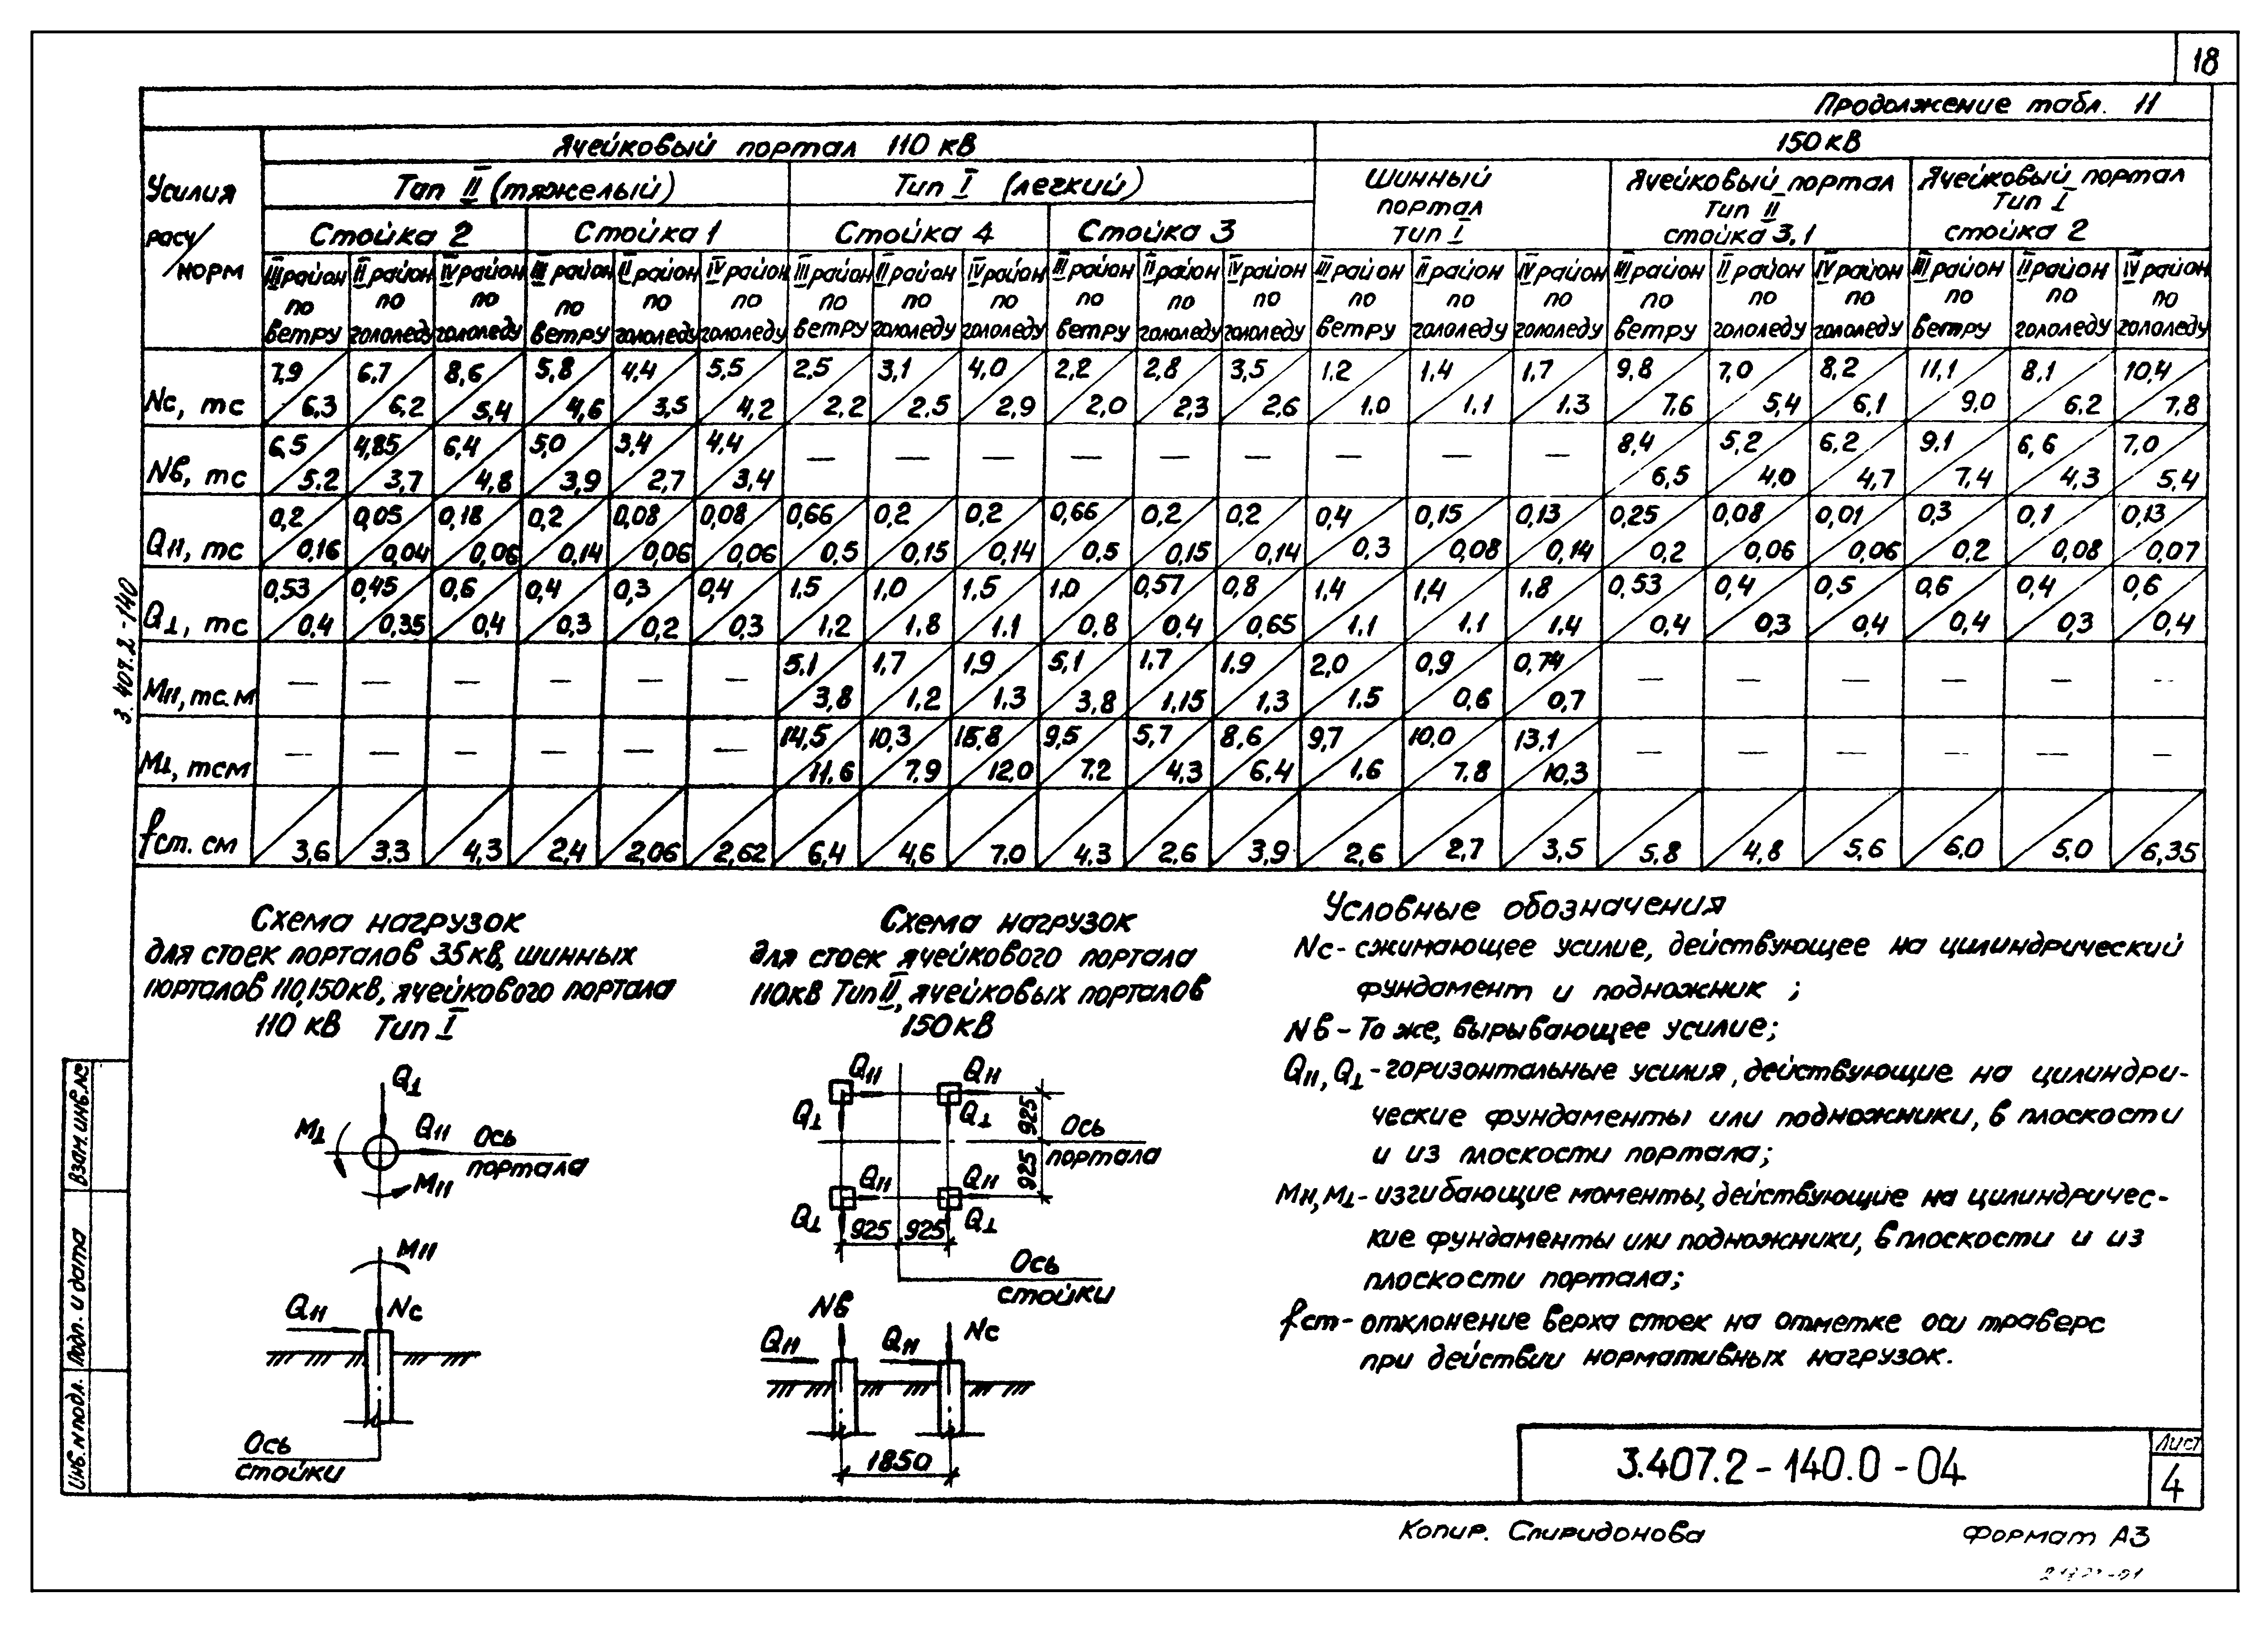 18
Продолжение табл. 11
Усилия расч/норм
Ячейковый портал 110 кВ
150 кВ
Тип II (тяжелый)
Тип I (легкий)
Шинный портал тип I
Ячейковый портал Тип II стойка 3,1
Ячейковый портал Тип I стойка 2
Стойка 2
Стойка 1
Стойка 4
Стойка 3
III район по ветру II район по гололеду IV район по гололеду III район по ветру II район по гололеду IV район по гололеду III район по ветру II район по гололеду IV район по гололеду III район по ветру II район по гололеду IV район по гололеду III район по ветру II район по гололеду IV район по гололеду III район по ветру II район по гололеду IV район по гололеду III район по ветру II район по гололеду IV район по гололеду
Nс, тс 7,9/6,3 6,7/6,2 8,6/5,4 5,8/4,6 4,4/3,5 5,5/4,2 2.5/2,2 3,1/2,5 4,0/2,9 2,2/2,0 2,8/2,3 3,5/2,6 1.2/1.0 1,4/1.1 1.7/1.3 9,8/7,6 7,0/5,4 8,2/6,1 11,1/9,0 8,1/6,2 10,4/7,8
Nв, тс 6,5/5.2 4,85/3,7 6,4/4,8 5,0/3,9 3,4/2,7 4,4/3,4 — — — — — — — — — 8,4/6,5 5,2/4,0 6,2/4,7 9,1/7,4 6,6/4,3 7,0/5,4
Q||, тс 0,2/0,16 0,05/0,04 0,18/0,06 0,2/0,14 0,08/0,06 0,08/0,06 0,66/0,5 0,2/0,15 0,2/0,14 0,66/0,5 0,2/0,15 0,2/0,14 0,4/0,3 0,15/0,08 0,13/0,14 0,25/0,2 0,08/0,06 0,01/0,06 0,3/0,2 0,1/0,08 0,13/0,07
Q⊥, тс 0,53/0,4 0,45/0,35 0,6/0,4 0,4/0,3 0,3/0,2 0,4/0,3 1.5/1.2 1,0/1,8 1.5/1.1 1.0/0,8 0,57/0,4 0,8/0,65 1.4/1.1 1,4/1.1 1.8/1.4 0,53/0,4 0,4/0,3 0,5/0,4 0,6/0,4 0,4/0,3 0,6/0,4
М||, тс.м — — — — — — 5.1/3,8 1,7/1,2 1,9/1.3 5,1/3,8 1.7/1,15 1.9/1,3 2,0/1.5 0,9/0,6 0,74/0,7 — — — — — —
М⊥, тсм — — — — — — 14,5/11,6 10,3/7,9 15,8/12,0 9,5/7.2 5,7/4,3 8,6/6,4 9,7/1.6 10,0/7.8 13,1/10,3 — — — — — —
fст. см 3,6 3,3 4,3 2,4 2,06 2,62 6,4 4,6 7,0 4,3 2,6 3,9 2,6 2,7 3,5 5,8 4,8 5,6 6,0 5,0 6,35
3.407.2-140
Схема нагрузок
для стоек порталов 35кВ, шинных
порталов 110,150кВ, ячейкового портала
110 кВ Тип I
Q⊥
М⊥
Q||
Ось
портала
М||
М||
Q||
Nс
Ось
стойки
Схема нагрузок
для стоек ячейкового портала
110кВ Тип II, ячейковых порталов
150кВ
Q||
Q||
Q⊥
Q⊥
925
Ось
портала
925
Q||
Q||
Q⊥
925
925
Q⊥
Ось
стойки
Nв
Q||
Q||
Nс
1850
Условные обозначения
Nс- сжимающее усилие, действующее на цилиндрический
фундамент и подножник ;
Nв- То же, вырывающее усилие;
Q||, Q⊥-горизонтальные усилия, действующие на цилиндри-
ческие фундаменты или подножники, в плоскости
и из плоскости портала;
М||, М⊥- изгибающие моменты, действующие на цилиндричес-
кие фундаменты или подножники, в плоскости и из
плоскости портала;
fст- отклонение верха стоек на отметке оси траверс
при действии нормативных нагрузок.
Взам. инв. №
Подп. и дата
Инв. N подл.
3.407.2-140.0-04
Лист
4
Копир. Спиридонова
Формат А3